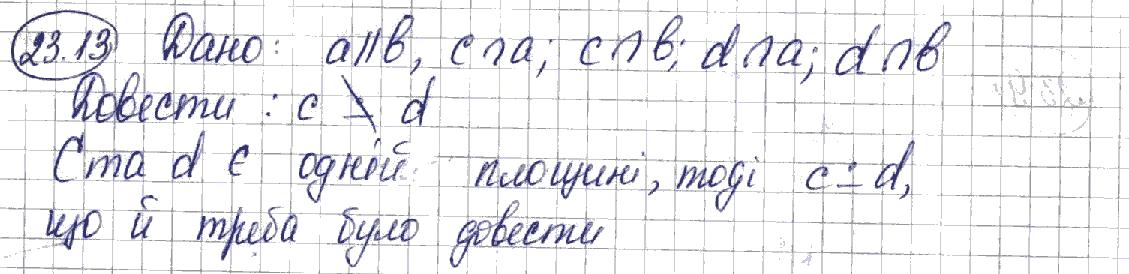 23.13 Дано: a∥b, c∩a; c∩b; d∩a; d∩b
Довести: c ∸ d
С та d є одній площині, тоді c ∸ d,
що й треба було довести